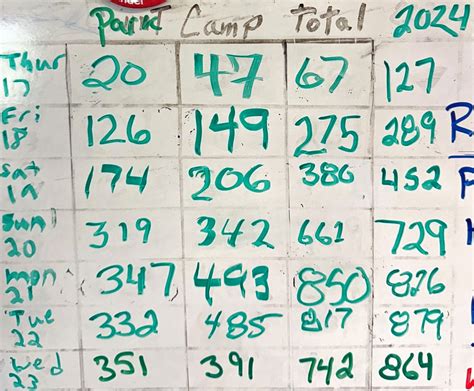 Camp Total 2024
Thur 17 20 47 67 127
Fri 18 126 149 275 289
Sat 19 174 206 386 452
Sun 20 319 342 661 729
mon 21 347 493 850 876
Tue 22 332 485 817 879
Wed 23 351 391 742 864
R